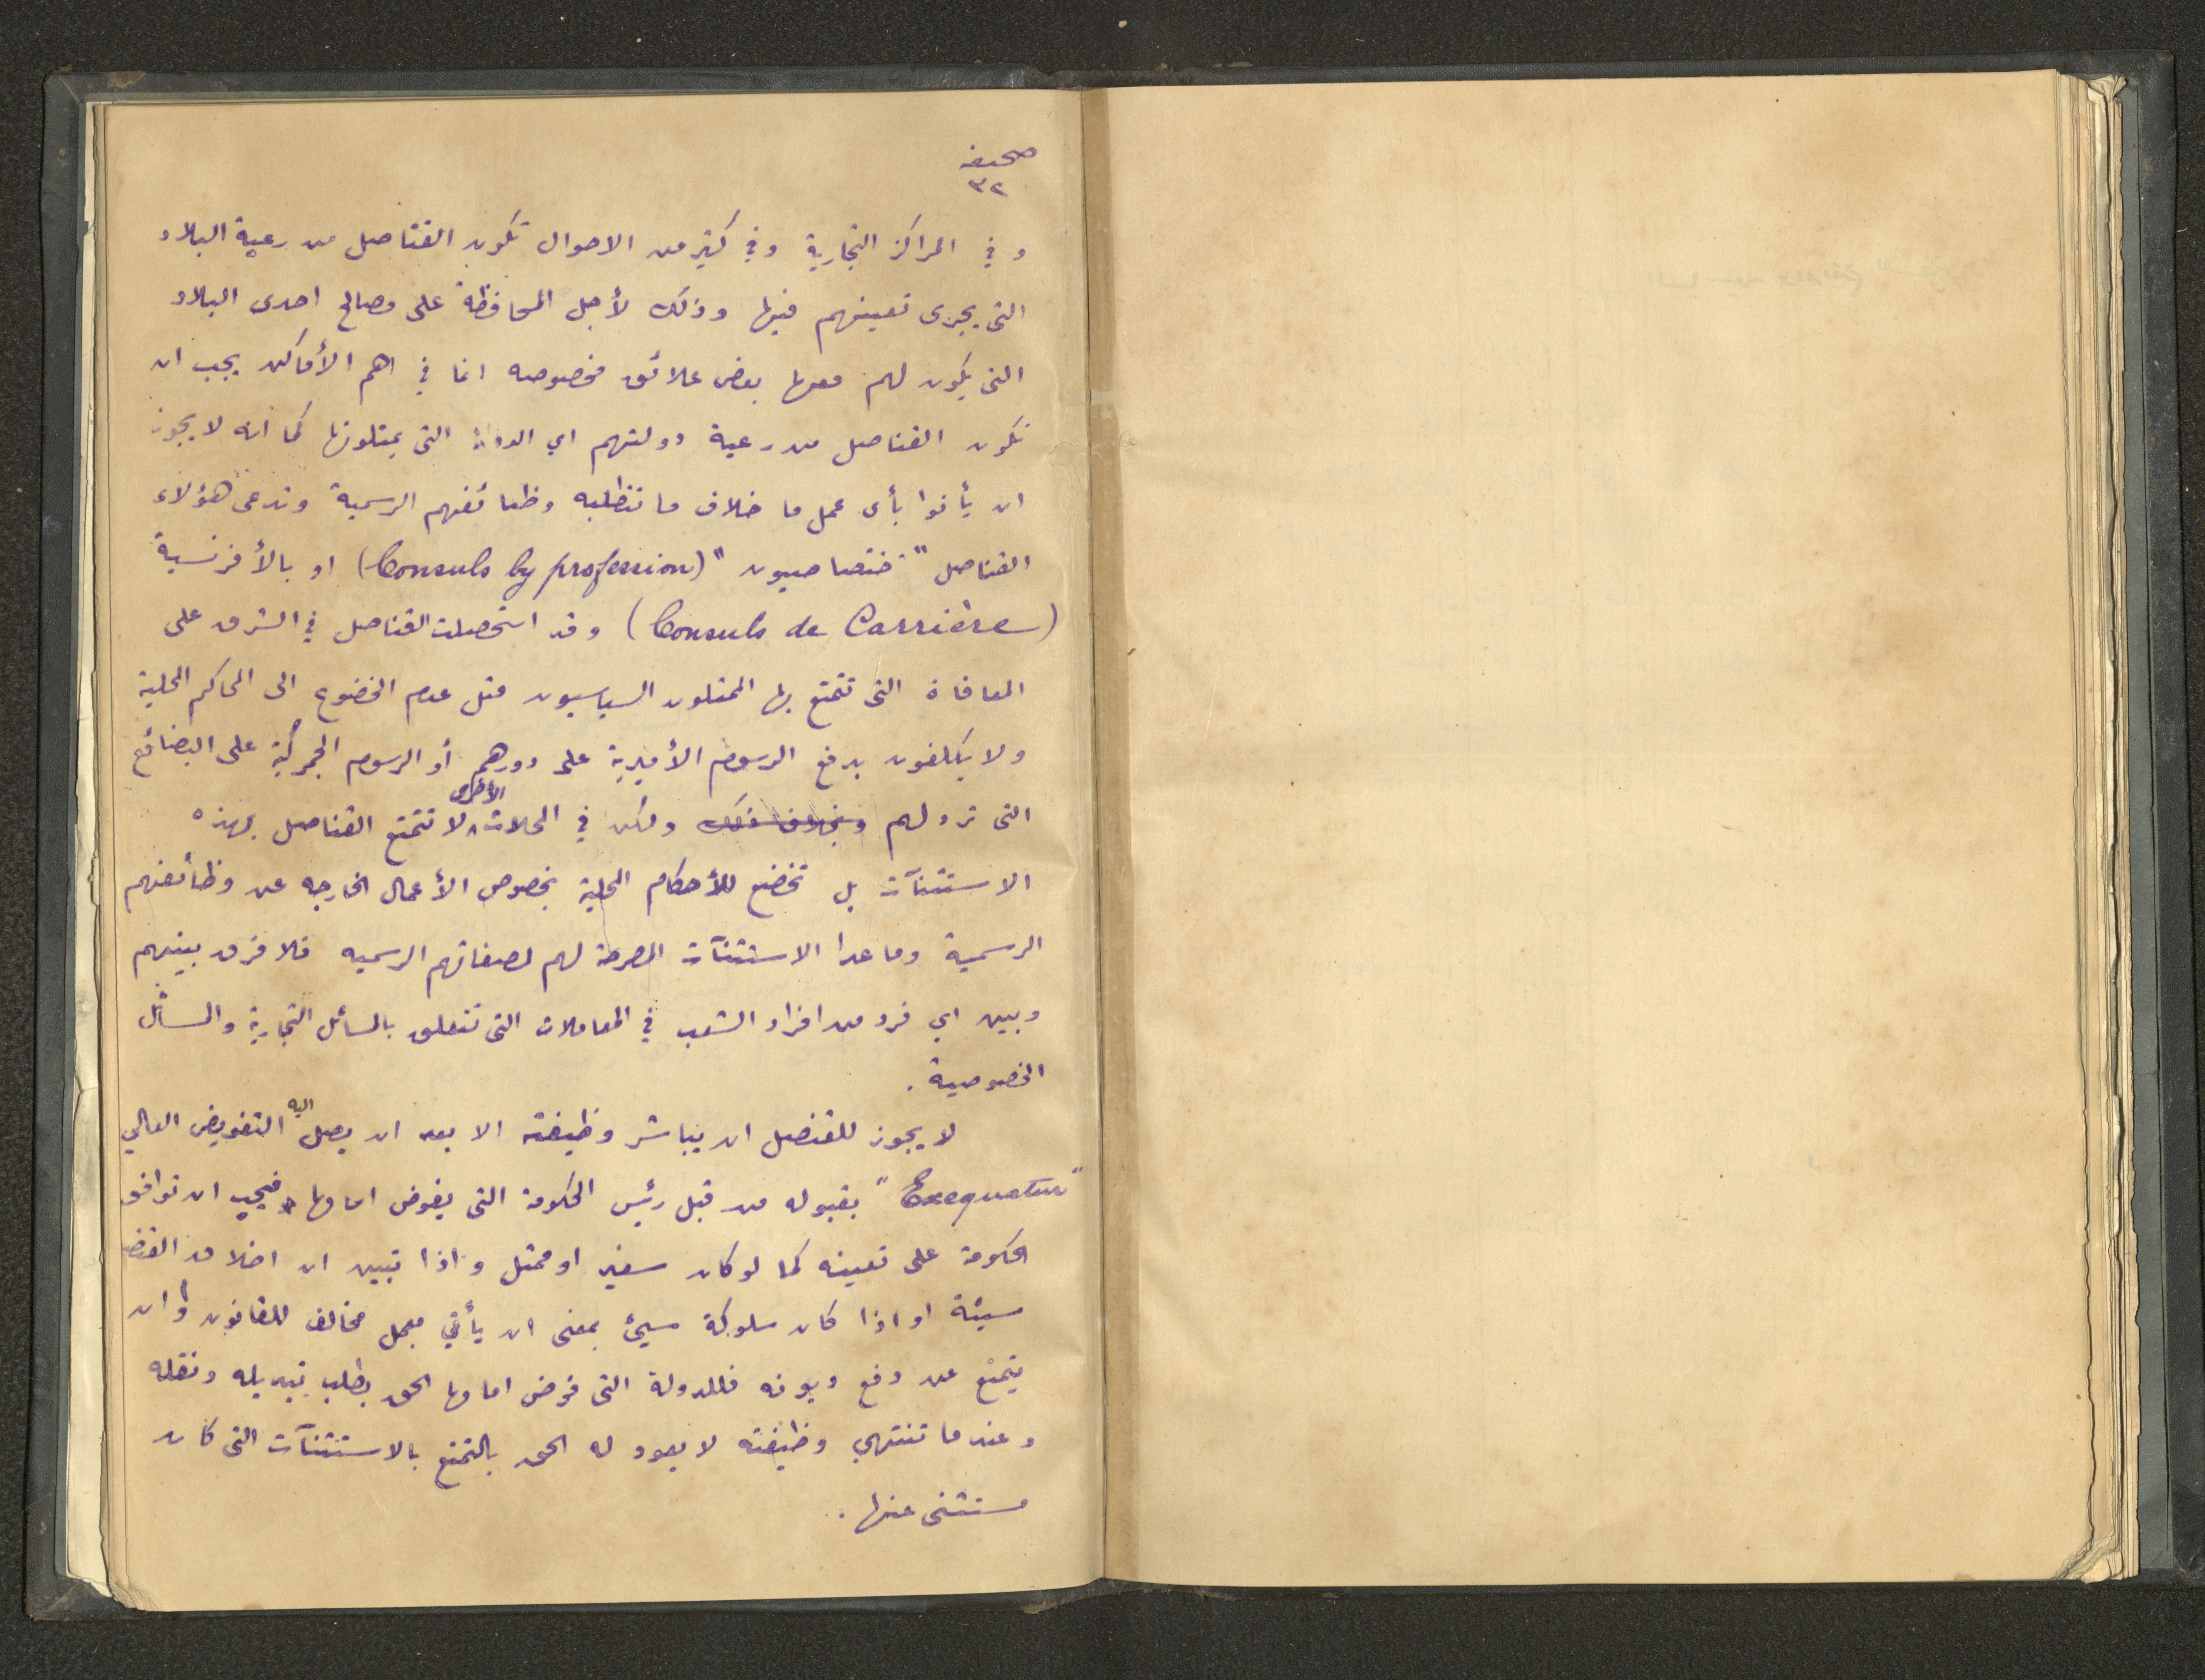 صحيفه
٣٢
و في المراكز التجارية وفي كثير من الاحوال تكون القناصل من رعية البلاد
التى يجرى تعيينهم فيها وذلك لأجل المحافظة على مصالح احدى البلاد
التى يكون لهم معها بعض علائق مخصوصه انما في اهم الأماكن يجب ان
تكون القناصل من رعية دولتهم اي الدولة التى يمثلونها كما انه لا يجوز
ان يأتوا بأى عمل ما خلاف ما تتطلبه وظائفهم الرسمية وتدعى هؤلاء
القناصل "ختصاصيون" (Consuls by profession) او بالأفرنسية
(Consuls de Carrière) وقد استحصلت القناصل في الشرق على
المعافاة التى تتمتع بها الممثلون السياسيون مثل عدم الخضوع الى المحاكم المحلية
ولا يكلفون بدفع الرسوم الأميرية على دورهم أو الرسوم الجمركية على البضائع
التى ترد لهم وبخلاف ذلك ولكن في المحلات الأخرى لا تتمتع القناصل بهذه
الاستثنآت بل تخضع للأحكام المحلية بخصوص الأعمال الخارجه عن وظائفهم
الرسمية وما عدا الاستثنآت المصرحة لهم لصفاتهم الرسميه فلا فرق بينهم
وبين اي فرد من افراد الشعب في المعاملات التى تتعلق بالمسائل التجارية والمسائل
الخصوصية .
لا يجوز للقنصل ان يباشر وظيفته الا بعد ان يصل اليه التفويض العالي
"Exequatur" بقبوله من قبل رئيس الحكومة التى يفوض امامها فيجب ان توافق
الحكومة على تعيينه كما لو كان سفير او ممثل واذا تبين ان اخلاق القنصل
سيئة او اذا كان سلوكه سيئ بمعنى ان يأتي بعمل مخالف للقانون او ان
يتمنع عن دفع ديونه فللدولة التى فوض امامها الحق بطلب تبديله ونقله
وعندما تنتهي وظيفته لا يعود له الحق بالتمتع بالاستثنآت التى كان
مستثنى عنها .